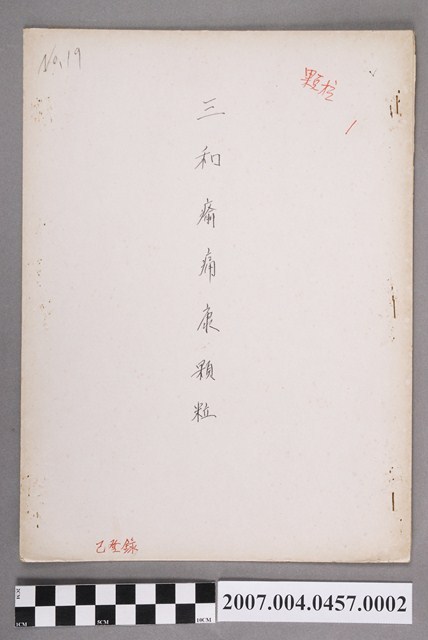 No.19
顆粒
1
三和痛康顆粒
已登錄
2CM
1CM
5CM
10CM
2007.004.0457.0002